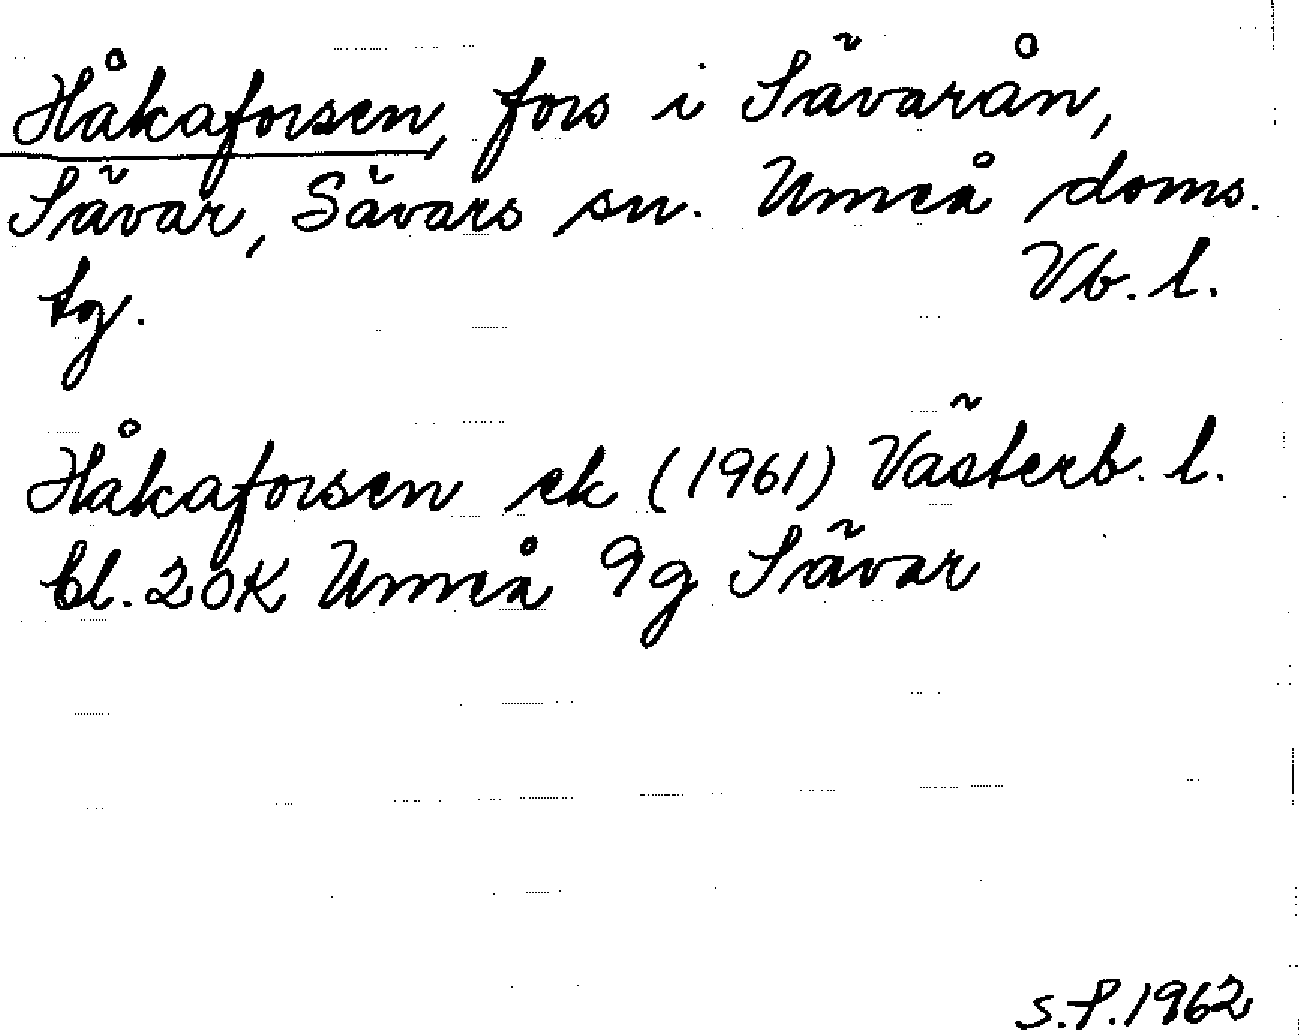 Håkaforsen, fors i Sävarån,
Sävar, Sävars sn. Umeå doms.
tg. Vb. l.
Håkaforsen ek (1961) Västerb. l.
bl. 20K Umeå 9g Sävar
S.P. 1962